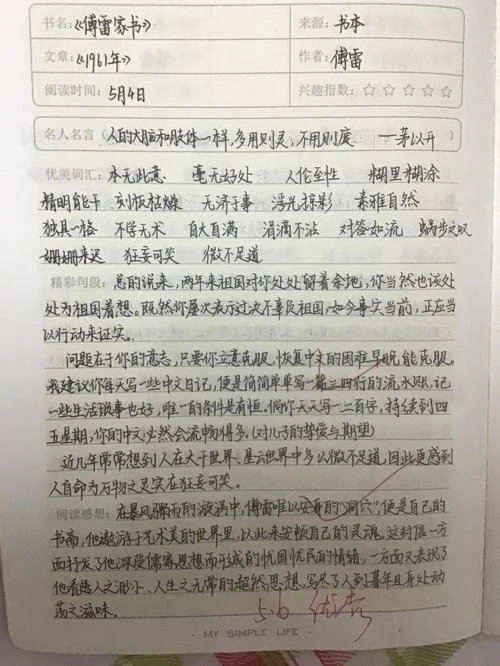 书名：《傅雷家书》 来源：书本
文章：《1961年》 作者：傅雷
阅读时间：5月4日 兴趣指数：☆ ☆ ☆ ☆ ☆
名人名言 （人的大脑和肢体一样，多用则灵，不用则废 ——茅以升
优美词汇：本无此意 毫无好处 人伦至性 糊里糊涂
精明能干 刻板枯燥 无济于事 浮光掠影 素雅自然
独具一格 不学无术 自大自满 涓滴不沾 对答如流
姗姗来迟 狂妄可笑 微不足道
精彩句段：总的说来，两年来祖国对你处处留着余地，你当然也该处
处为祖国着想。既然你屡次表示过决不辜负祖国，如今事实当前，正应当
以行动来证实。
问题在于你的意志，只要你立意克服，恢复中文的困难早晚能克服。
我建议你每天写一些中文日记，便是简简单单写一篇三四行的流水账，记
一些生活琐事也好，唯一的条件是有恒。倘你天天写一二百字，持续到四
五星期，你的中文必然会流畅得多。（对儿子的挚爱与期望）
近几年常常想到人在大千世界、星云世界中多么微不足道，因此更感到
人自命为万物之灵实在狂妄可笑。
阅读感想：在暴风骤雨的漩涡中，傅雷唯以安身的“洞穴”便是自己的
书斋，他遨游于艺术美的世界里，以此来安顿自己的灵魂。这封信一方
面抒发了他深受儒家思想而形成的忧国忧民的情绪，一方面又表现了
他看透人之渺小、人生之无常的超然思想，写尽了人到暮年且身处动
荡之滋味。
5.6
· MY SIMPLE LIFE ·